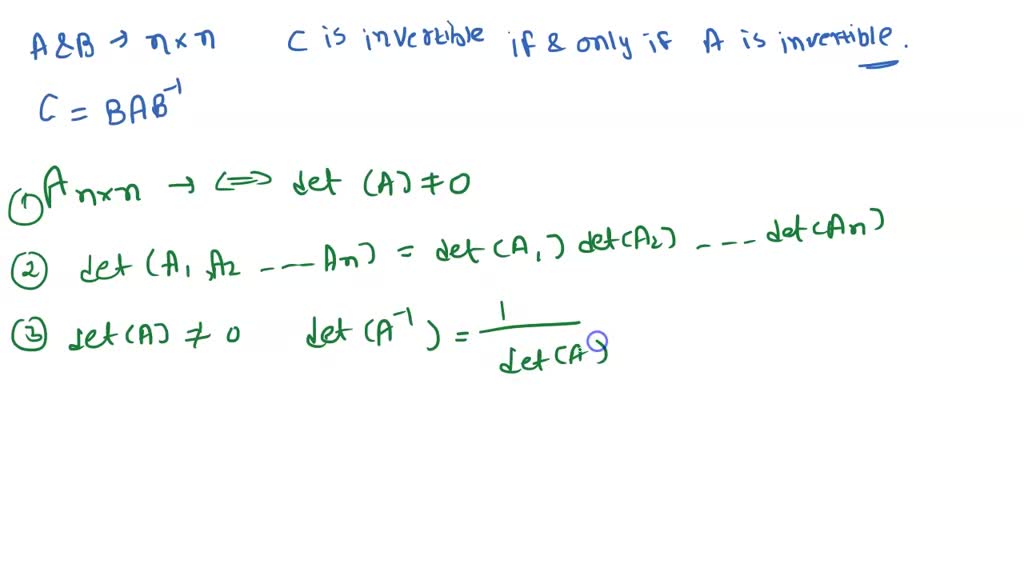 A & B → n×n C is invertible if & only if A is invertible.
C = BAB⁻¹
① Aₙₓₙ → ⟺ det (A) ≠ 0
② det (A₁ A₂ ---- Aₙ) = det(A₁) det(A₂) ---- det(Aₙ)
③ det(A) ≠ 0 det(A⁻¹) = 1 / det(A)